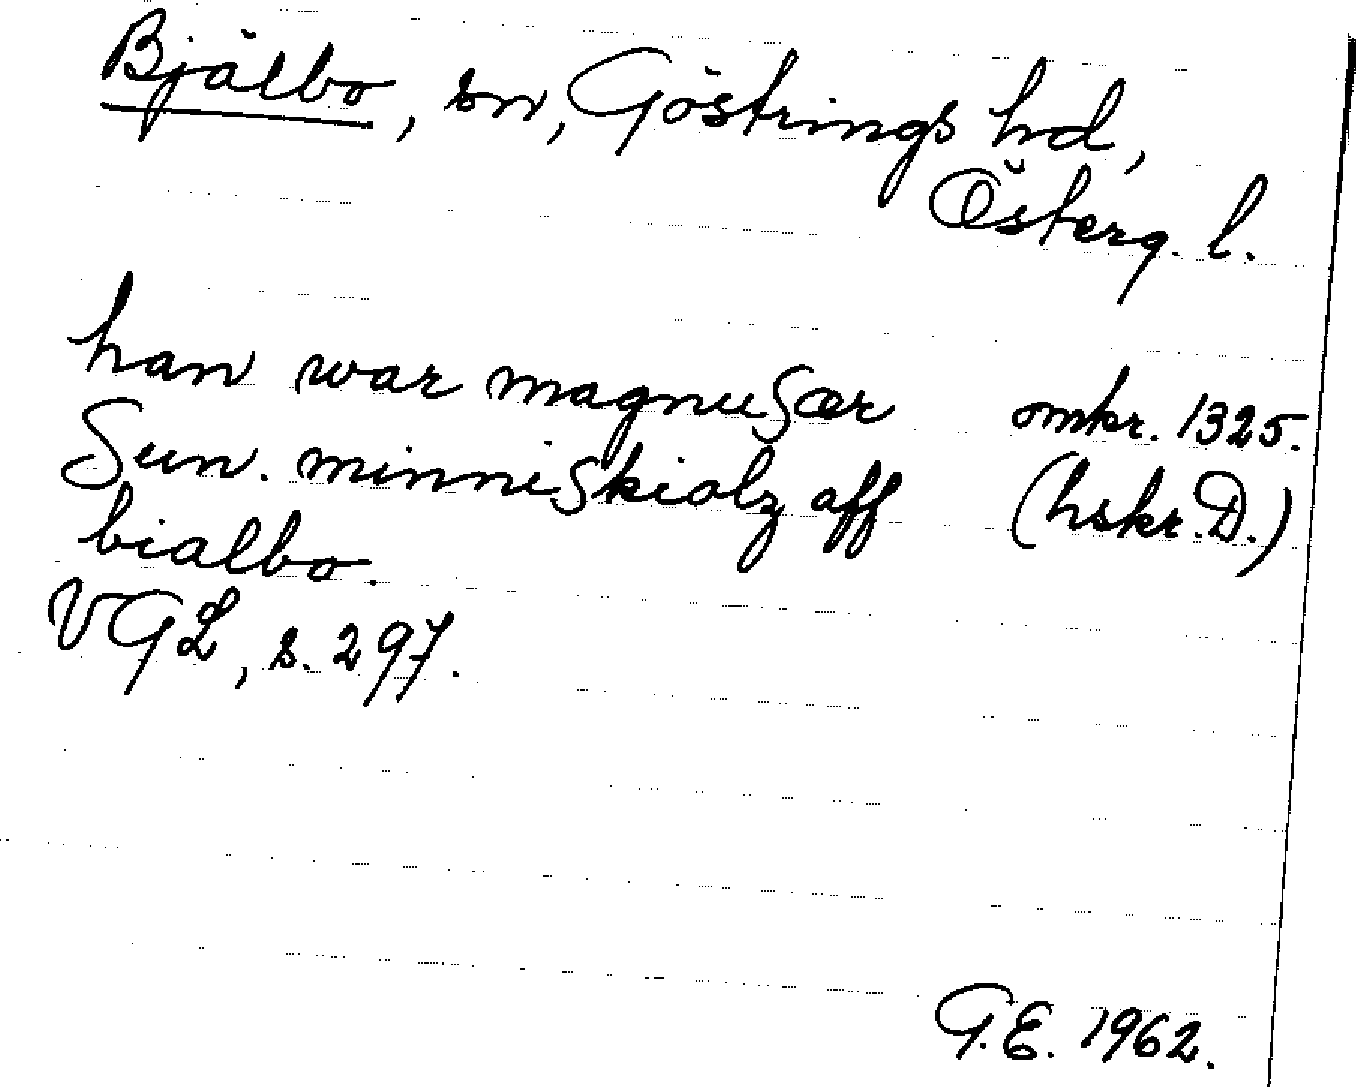 Bjälbo, sn, Göstrings hd,
Österg. l.
han war magnusær omkr. 1325.
Sun. minniskiolz aff (hskr. D.)
bialbo.
VGL, s. 297.
G.E. 1962.